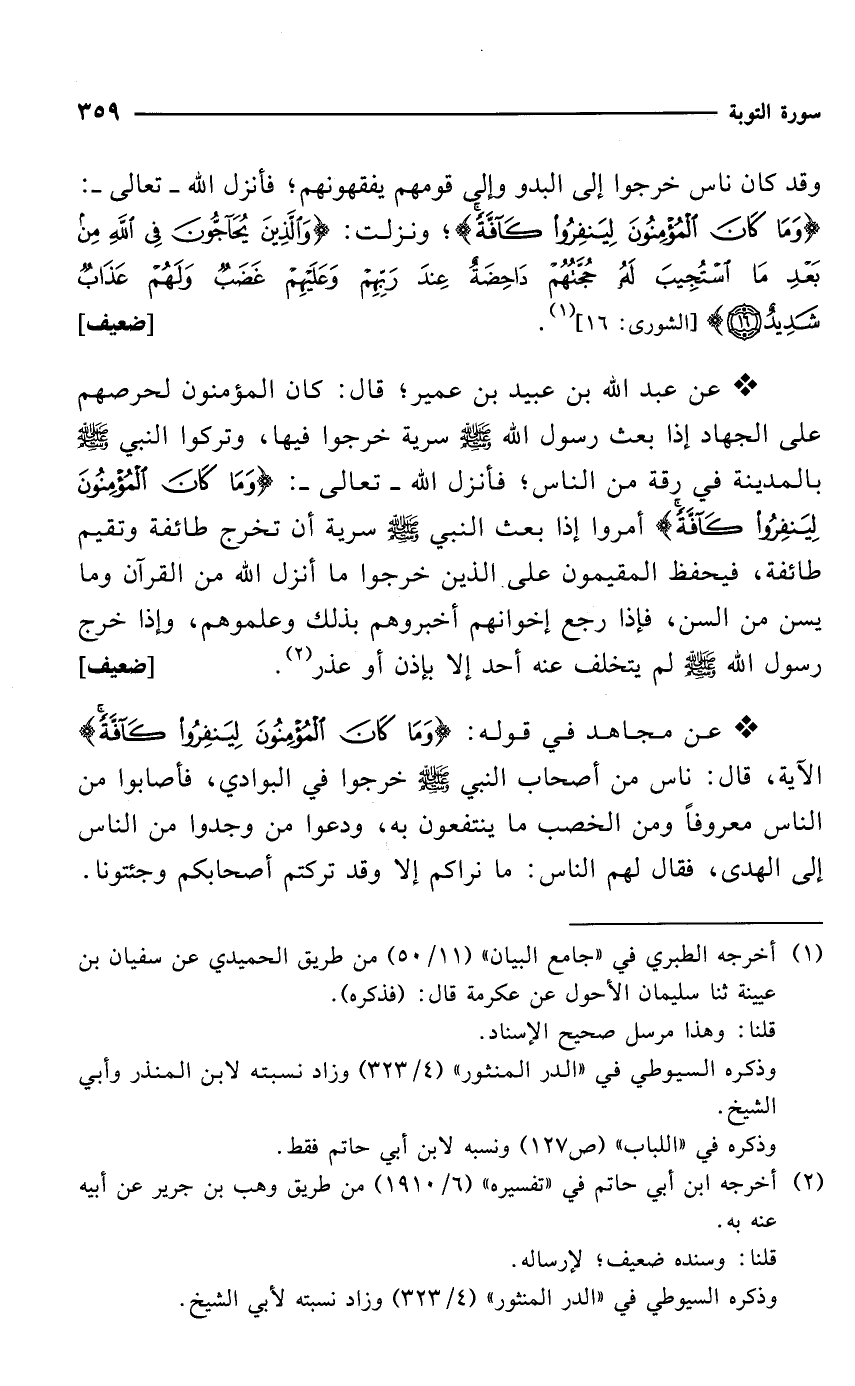 سورة التوبة ٣٥٩
وقد كان ناس خرجوا إلى البدو وإلى قومهم يفقهونهم؛ فأنزل الله ـ تعالى ـ:
﴿وَمَا كَانَ ٱلْمُؤْمِنُونَ لِيَنفِرُوا۟ كَآفَّةً ۚ﴾؛ ونزلت: ﴿وَٱلَّذِينَ يُحَآجُّونَ فِى ٱللَّهِ مِنۢ
بَعْدِ مَا ٱسْتُجِيبَ لَهُۥ حُجَّتُهُمْ دَاحِضَةٌ عِندَ رَبِّهِمْ وَعَلَيْهِمْ غَضَبٌ وَلَهُمْ عَذَابٌ
شَدِيدٌ ١٦﴾ [الشورى: ١٦](١). [ضعيف]
❖ عن عبد الله بن عبيد بن عمير؛ قال: كان المؤمنون لحرصهم
على الجهاد إذا بعث رسول الله ﷺ سرية خرجوا فيها، وتركوا النبي ﷺ
بالمدينة في رقة من الناس؛ فأنزل الله ـ تعالى ـ: ﴿وَمَا كَانَ ٱلْمُؤْمِنُونَ
لِيَنفِرُوا۟ كَآفَّةً ۚ﴾ أمروا إذا بعث النبي ﷺ سرية أن تخرج طائفة وتقيم
طائفة، فيحفظ المقيمون على الذين خرجوا ما أنزل الله من القرآن وما
يسن من السنن، فإذا رجع إخوانهم أخبروهم بذلك وعلموهم، وإذا خرج
رسول الله ﷺ لم يتخلف عنه أحد إلا بإذن أو عذر(٢). [ضعيف]
❖ عن مجاهد في قوله: ﴿وَمَا كَانَ ٱلْمُؤْمِنُونَ لِيَنفِرُوا۟ كَآفَّةً ۚ﴾
الآية، قال: ناس من أصحاب النبي ﷺ خرجوا في البوادي، فأصابوا من
الناس معروفاً ومن الخصب ما ينتفعون به، ودعوا من وجدوا من الناس
إلى الهدى، فقال لهم الناس: ما نراكم إلا وقد تركتم أصحابكم وجئتونا.
(١) أخرجه الطبري في «جامع البيان» (١١/ ٥٠) من طريق الحميدي عن سفيان بن
عيينة ثنا سليمان الأحول عن عكرمة قال: (فذكره).
قلنا: وهذا مرسل صحيح الإسناد.
وذكره السيوطي في «الدر المنثور» (٤/ ٣٢٣) وزاد نسبته لابن المنذر وأبي
الشيخ.
وذكره في «اللباب» (ص١٢٧) ونسبه لابن أبي حاتم فقط.
(٢) أخرجه ابن أبي حاتم في «تفسيره» (٦/ ١٩١٠) من طريق وهب بن جرير عن أبيه
عنه به.
قلنا: وسنده ضعيف؛ لإرساله.
وذكره السيوطي في «الدر المنثور» (٤/ ٣٢٣) وزاد نسبته لأبي الشيخ.